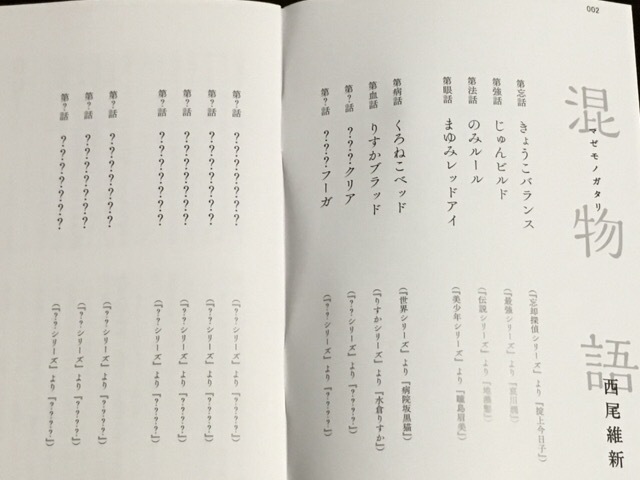 002
混物語
マゼモノガタリ
西尾維新
第忘話 きょうこバランス (『忘却探偵シリーズ』より『掟上今日子』)
第強話 じゅんビルド (『最強シリーズ』より『哀川潤』)
第法話 のみルール (『伝説シリーズ』より『地濃鑿』)
第眼話 まゆみレッドアイ (『美少年シリーズ』より『瞳島眉美』)
第病話 くろねこベッド (『世界シリーズ』より『病院坂黒猫』)
第血話 りすかブラッド (『りすかシリーズ』より『水倉りすか』)
第?話 ???クリア (『??シリーズ』より『????』)
第?話 ???フーガ (『??シリーズ』より『????』)
第?話 ???????? (『??シリーズ』より『????』)
第?話 ???????? (『??シリーズ』より『????』)
第?話 ???????? (『??シリーズ』より『????』)
第?話 ???????? (『??シリーズ』より『????』)
第?話 ???????? (『??シリーズ』より『????』)
第?話 ???????? (『??シリーズ』より『????』)
第?話 ???????? (『??シリーズ』より『????』)